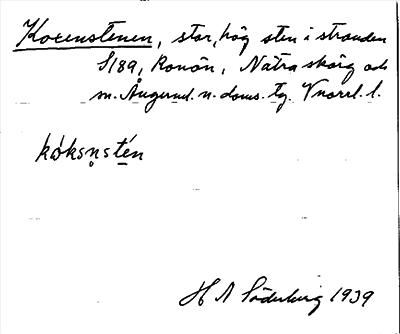 Kocenstenen, stor, hög sten i stranden
S189, Ronön, Nätra skärg och
m. Ångerml. n. doms. tg. Vnorrl. l.
kòksn̥stén
H A Söderberg 1939